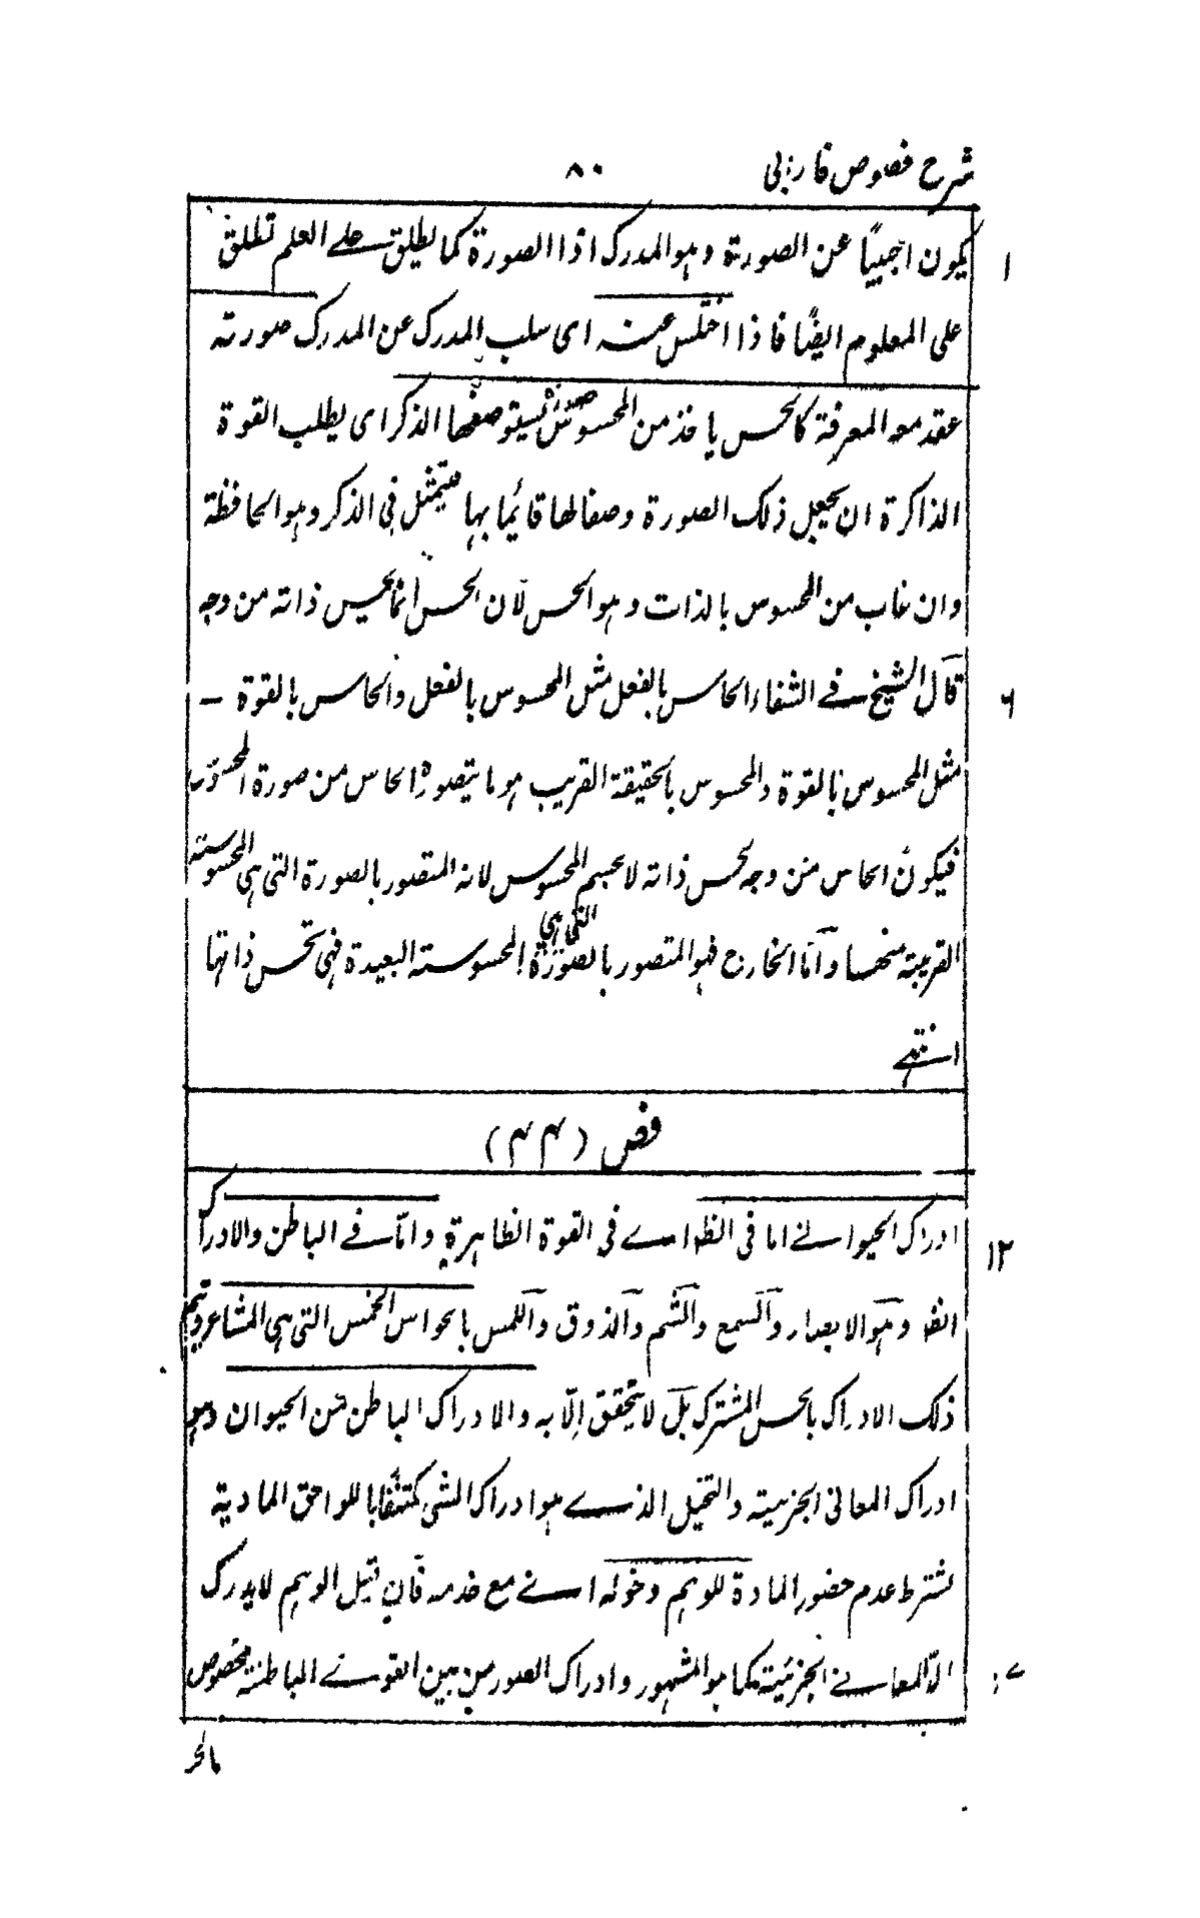 شرح فصوص فارابی
۸۰
یکون اجنبیًا عن الصورة وہو المدرک اذا الصورة کما یطلق علی العلم تطلق
۱
علی المعلوم ایضًا فاذا اختلس عنہ ای سلب المدرک عن المدرک صورتہ
عقد معہ المعرفة کالحس یاخذ من المحسوس صورًا یستوصفہا الذکر ای یطلب القوة
الذاکرة ان یجعل ذلک الصورة وصفا لہا قائما بہا فیتمثل فی الذکر وہو الحافظة
وان غاب من المحسوس بالذات وہو الحس لان الحس انما یحس ذاتہ من وجہ
قال الشیخ فی الشفاء الحاس بالفعل مثل المحسوس بالفعل والحاس بالقوة ۔
۶
مثل المحسوس بالقوة والمحسوس بالحقیقة القریب ہو ما یتصورہ الحاس من صورة المحسوس
فیکون الحاس من وجہ یحس ذاتہ لا جسم المحسوس لانہ المتصور بالصورة التی ہی المحسوسة
القریبة منہا واما الخارج فہو المتصور بالصورة التی ہی المحسوسة البعیدة فہی تحس ذاتہا
انتہے
فص (۴۴)
ادراک الحیوانی اما فی الظ اے فی القوة الظاہرة واما فے الباطن والادراک
۱۲
الظ وہو الابصار والسمع والشم والذوق واللمس بالحواس الخمس التی ہی المشاعر ویتم
ذلک الادراک بالحس المشترک بل لا یتحقق الّا بہ والادراک الباطن من الحیوان وہو
ادراک المعانی الجزئیة والتخیل الذے ہو ادراک الشی مکتنفًا باللواحق المادیة
بشرط عدم حضور المادة للوہم وخولہ اے مع خدمہ فان قیل الوہم لا یدرک
الا المعانی الجزئیة کما ہو المشہور وادراک الصور من بین القوے الباطنة مخصوص
بالحس